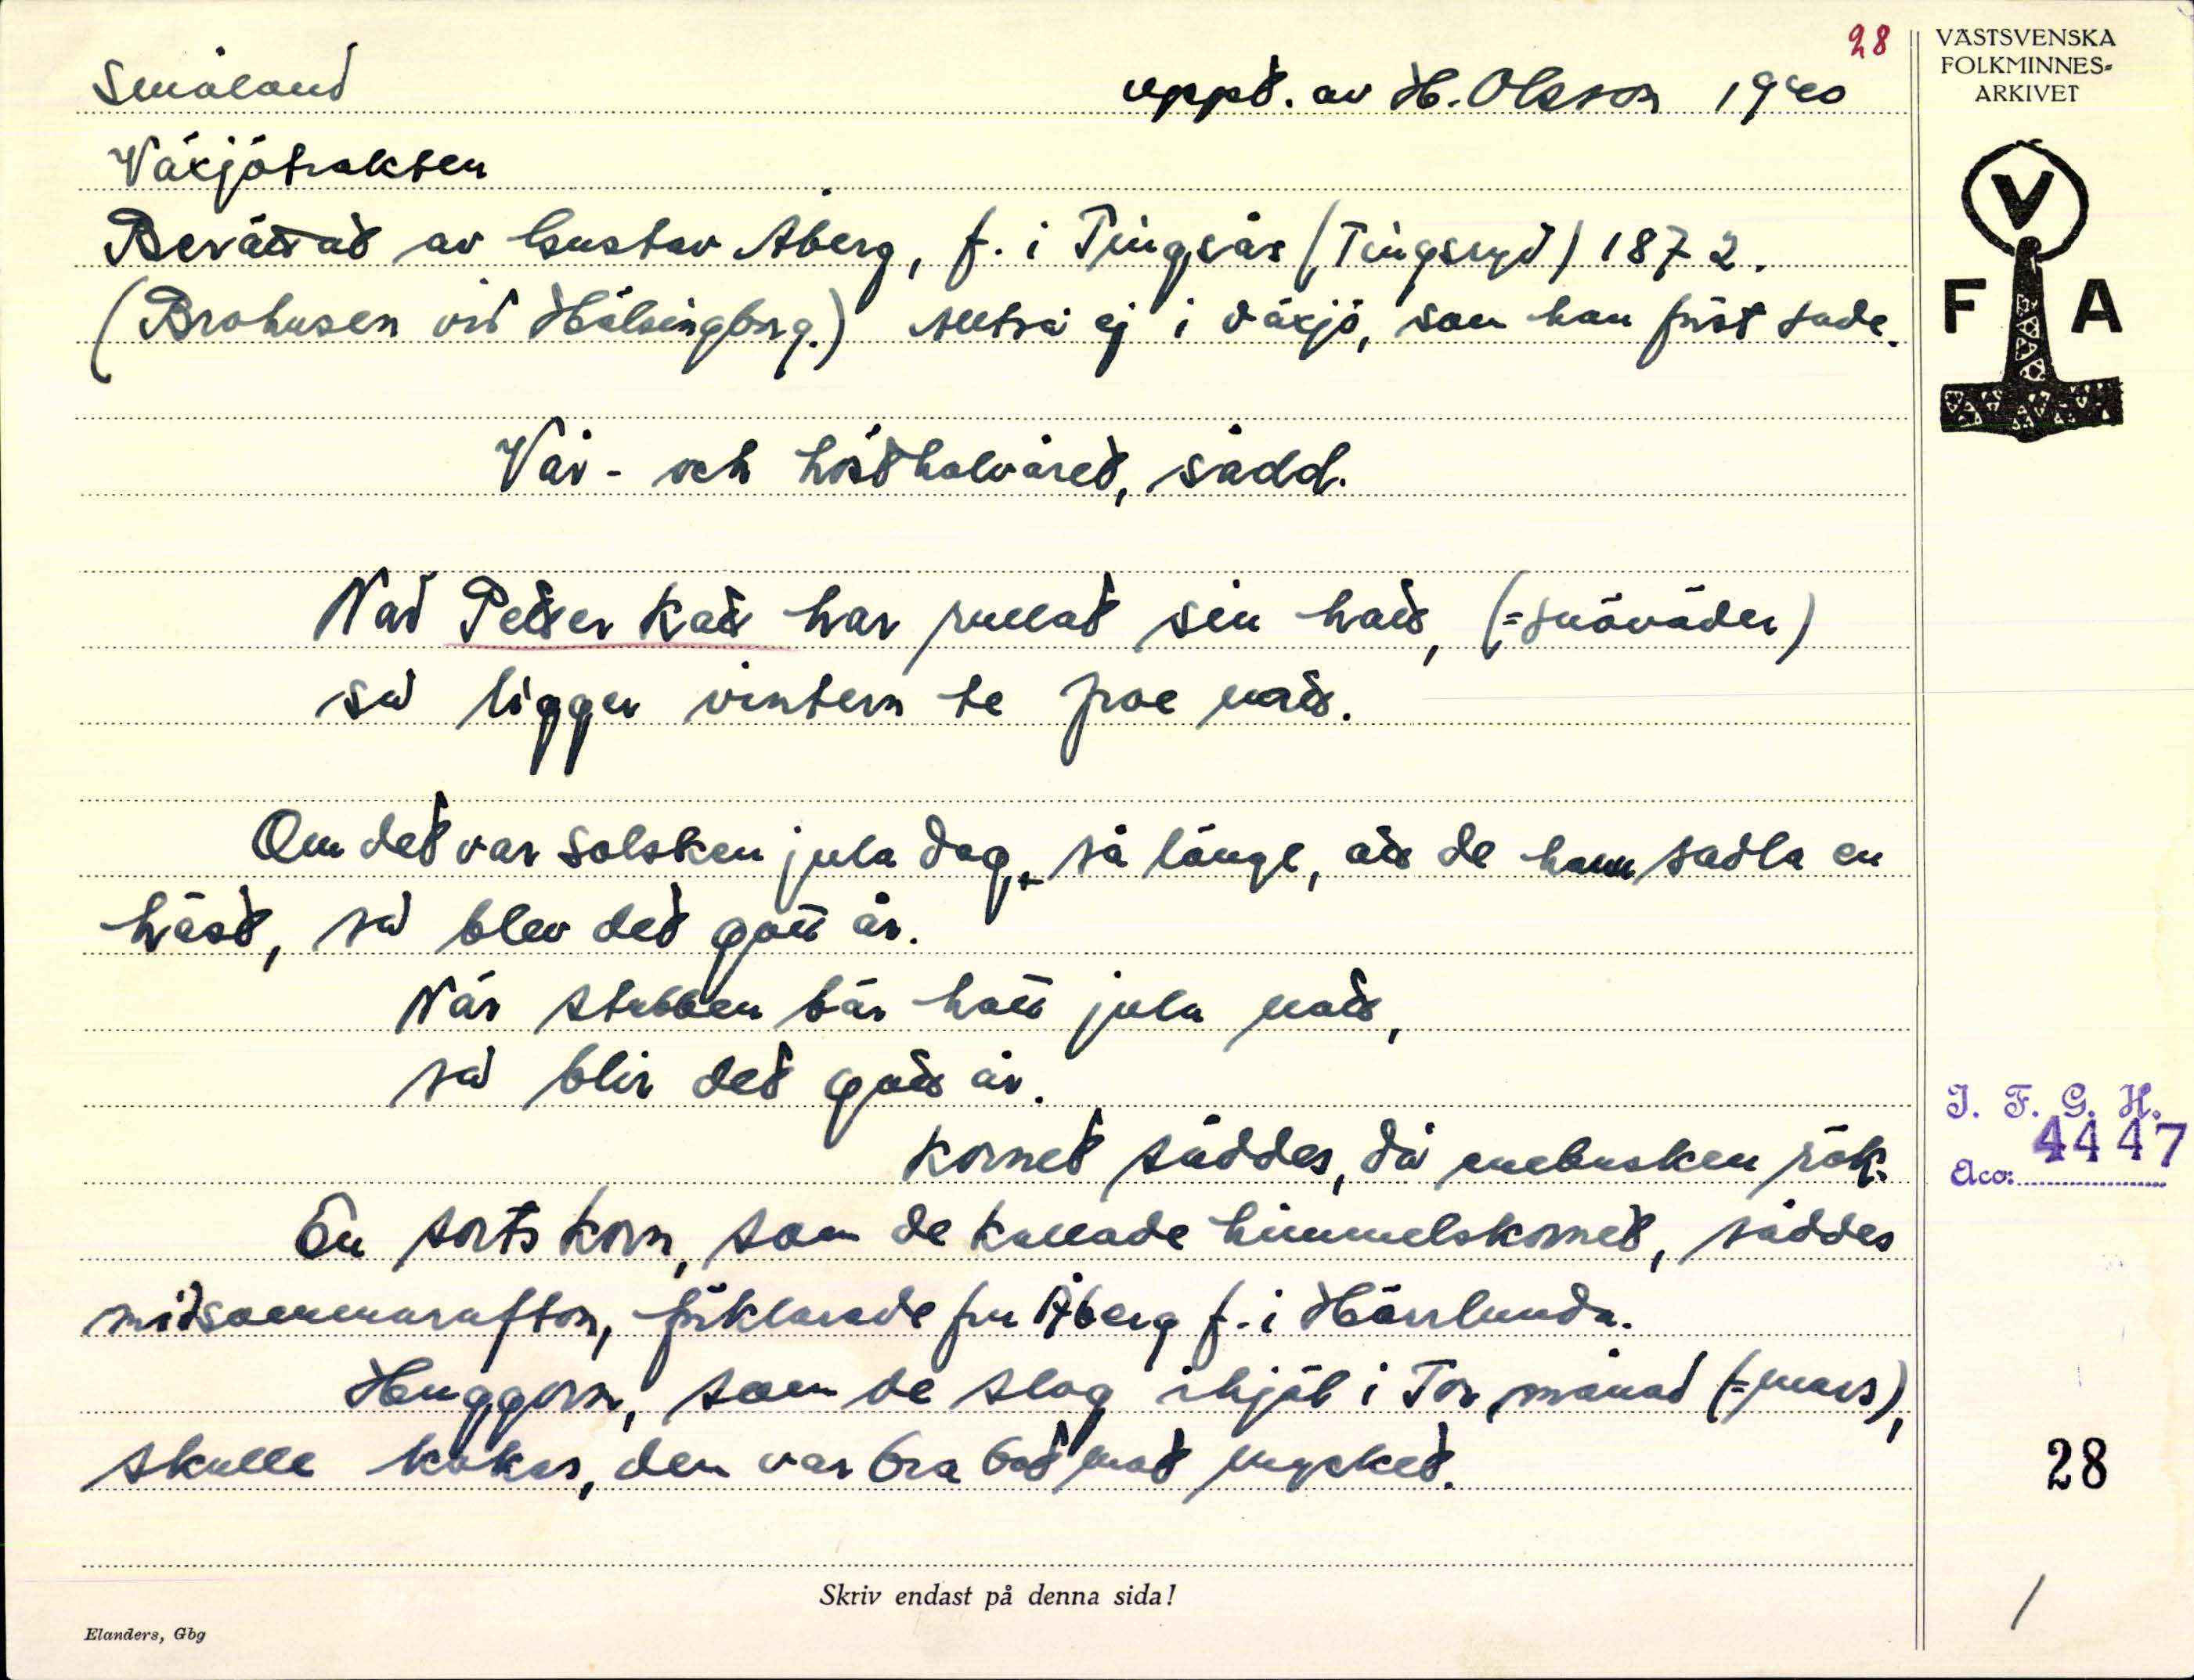 28
Småland uppt. av H. Olsson 1940
Växjötrakten
Berättat av Gustav Åberg, f. i Tingsås (Tingsryd) 1872.
(Brohusen vid Hälsingborg.) alltså ej i Växjö, som han först sade.
Vår- och hösthalvåret, sådd.
Nad Petter Katt har rullat sin hatt, (=snöväder)
så ligger vintern te proe natt.
Om det var solsken jula dag, så länge, att de hann sadla en
häst, så blev det gott år.
När stubben bär hatt jula natt,
så blir det gott år.
Kornet såddes, då enebusken rök.
En sorts korn, som de kallade himmelskornet, såddes
midsommarafton, förklarade fru Åberg f. i Härrlunda.
Huggorm, som de slog ihjäl i Tor månad (=mars),
skulle kokas, den var bra bot mot mycket.
Skriv endast på denna sida!
Elanders, Gbg
VÄSTSVENSKA
FOLKMINNES-
ARKIVET
V
F A
I. F. G. H.
4447
Acc:
28